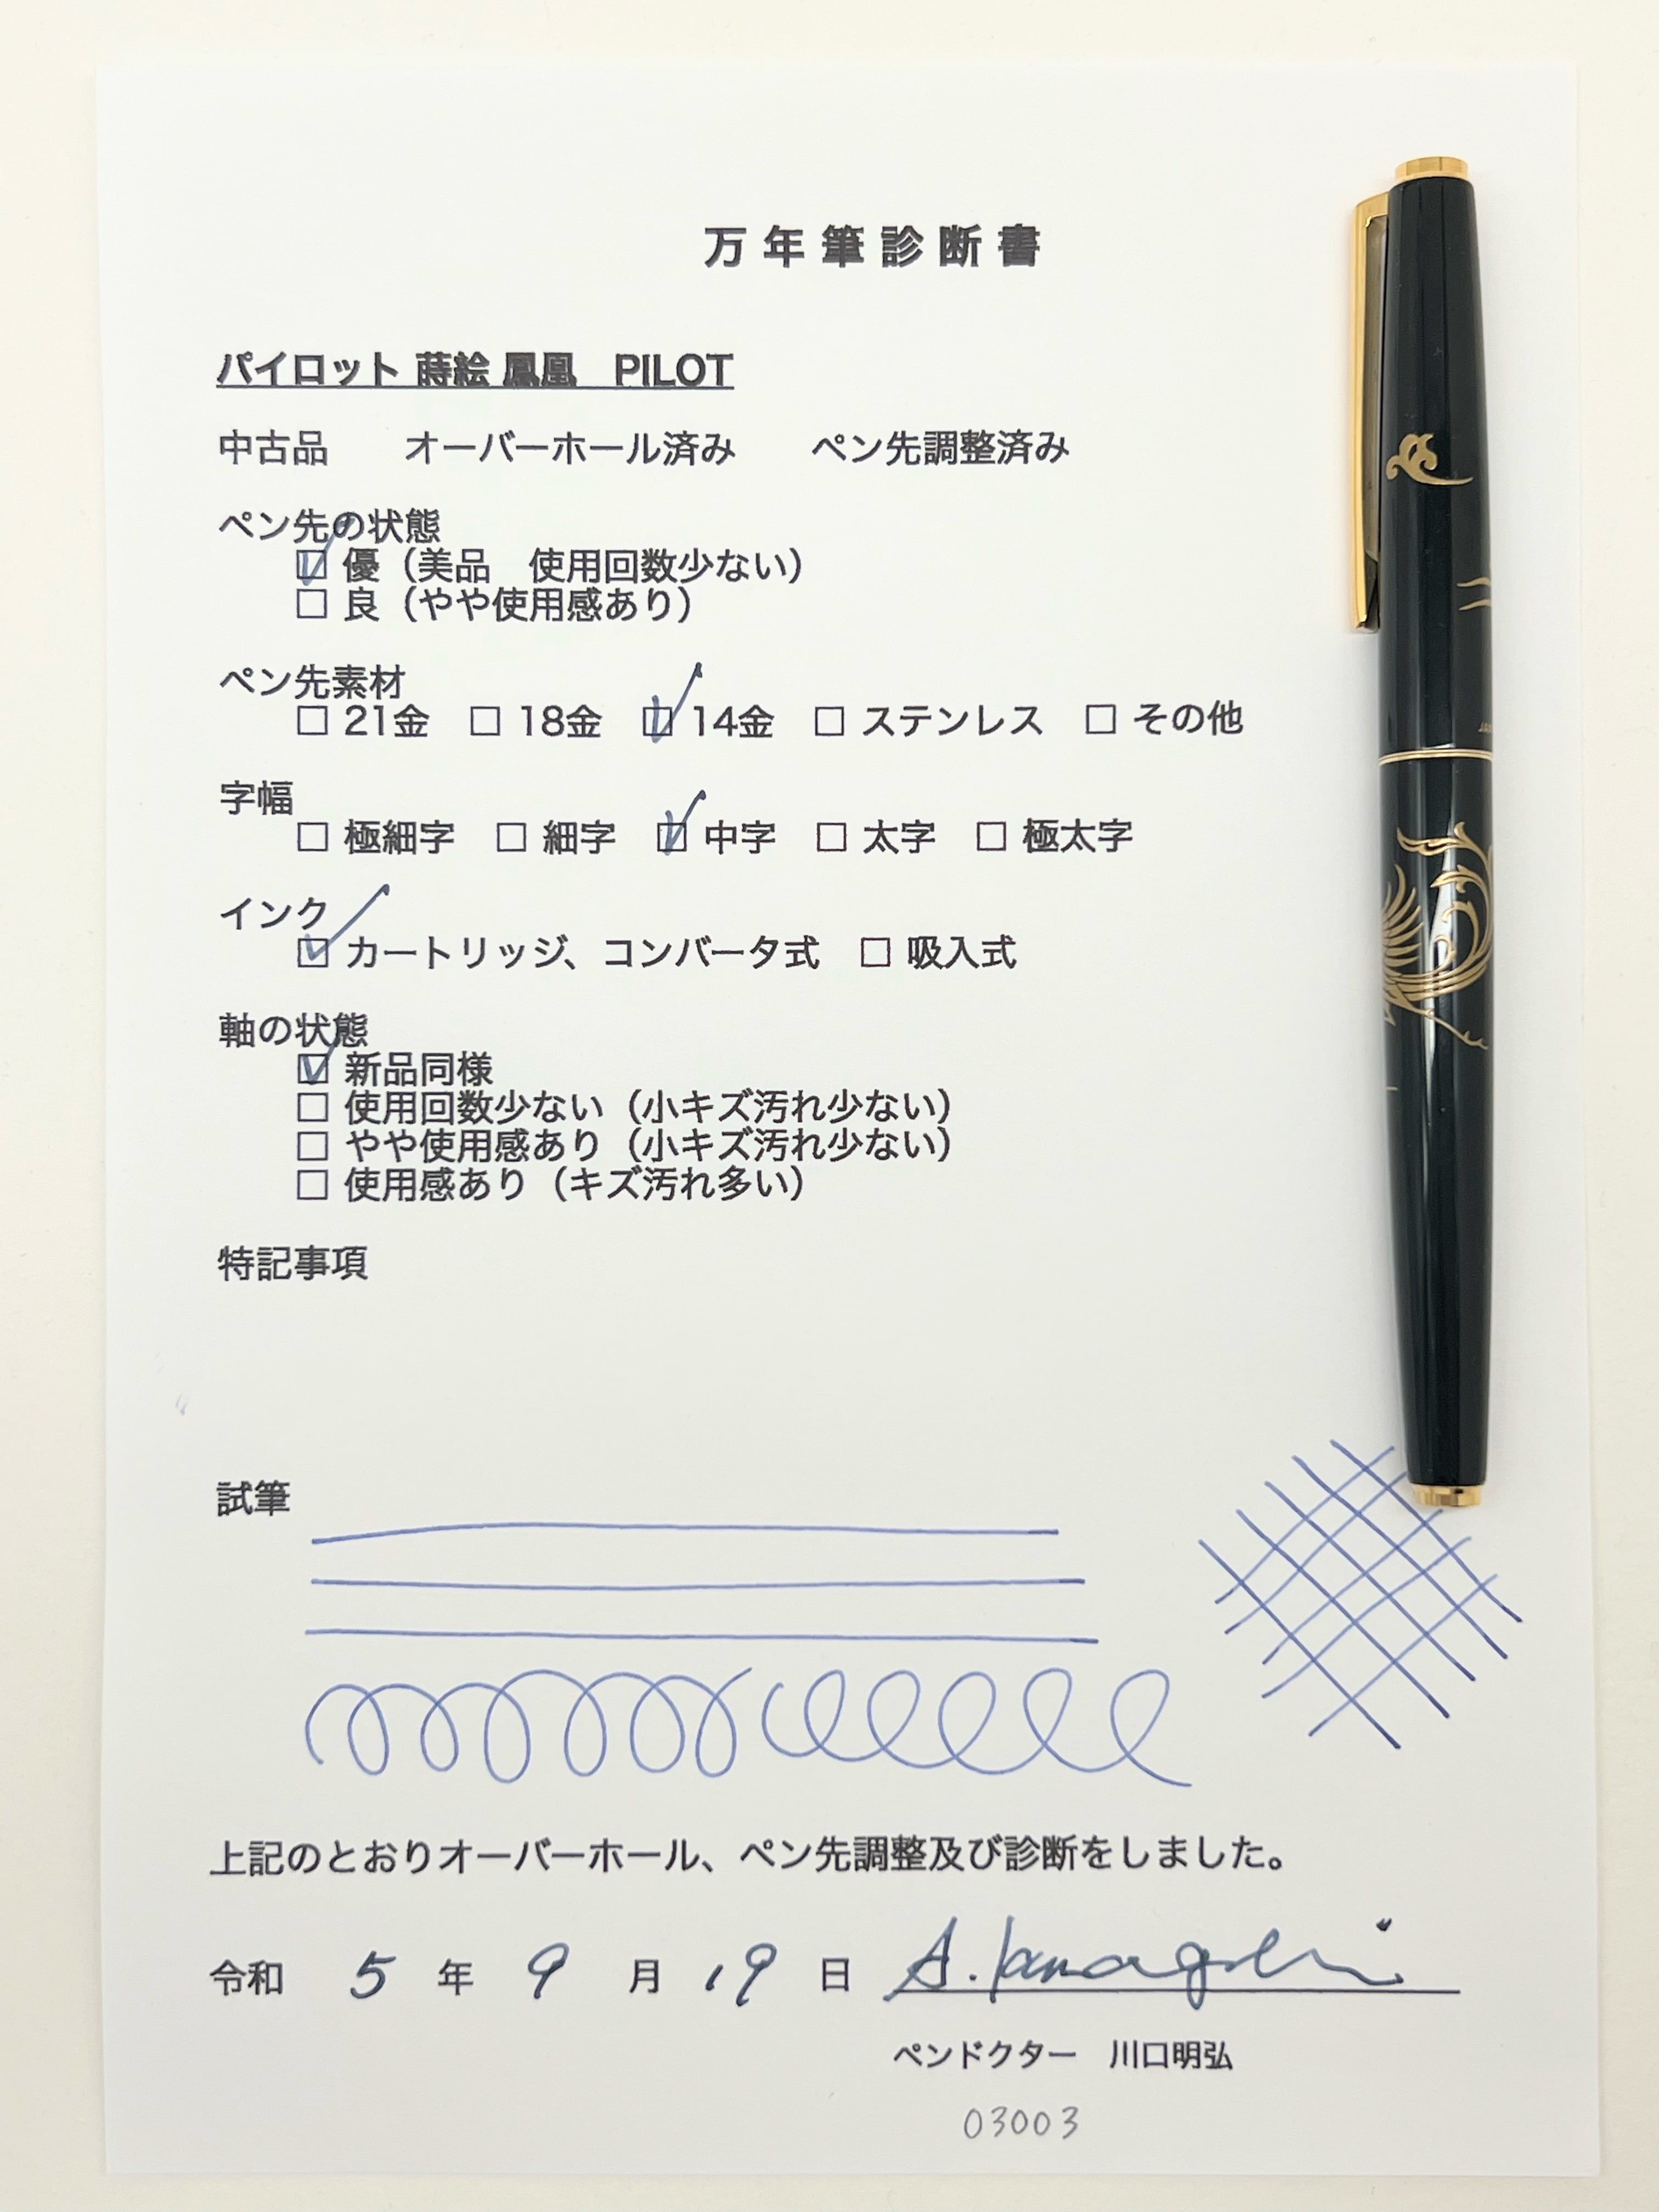 万年筆診断書
パイロット 蒔絵 鳳凰　PILOT
中古品　　オーバーホール済み　　ペン先調整済み
ペン先の状態
☑ 優（美品　使用回数少ない）
□ 良（やや使用感あり）
ペン先素材
□ 21金　□ 18金　☑ 14金　□ ステンレス　□ その他
字幅
□ 極細字　□ 細字　☑ 中字　□ 太字　□ 極太字
インク
☑ カートリッジ、コンバータ式　□ 吸入式
軸の状態
☑ 新品同様
□ 使用回数少ない（小キズ汚れ少ない）
□ やや使用感あり（小キズ汚れ少ない）
□ 使用感あり（キズ汚れ多い）
特記事項
試筆
上記のとおりオーバーホール、ペン先調整及び診断をしました。
令和 5 年 9 月 19 日
ペンドクター　川口明弘
03003